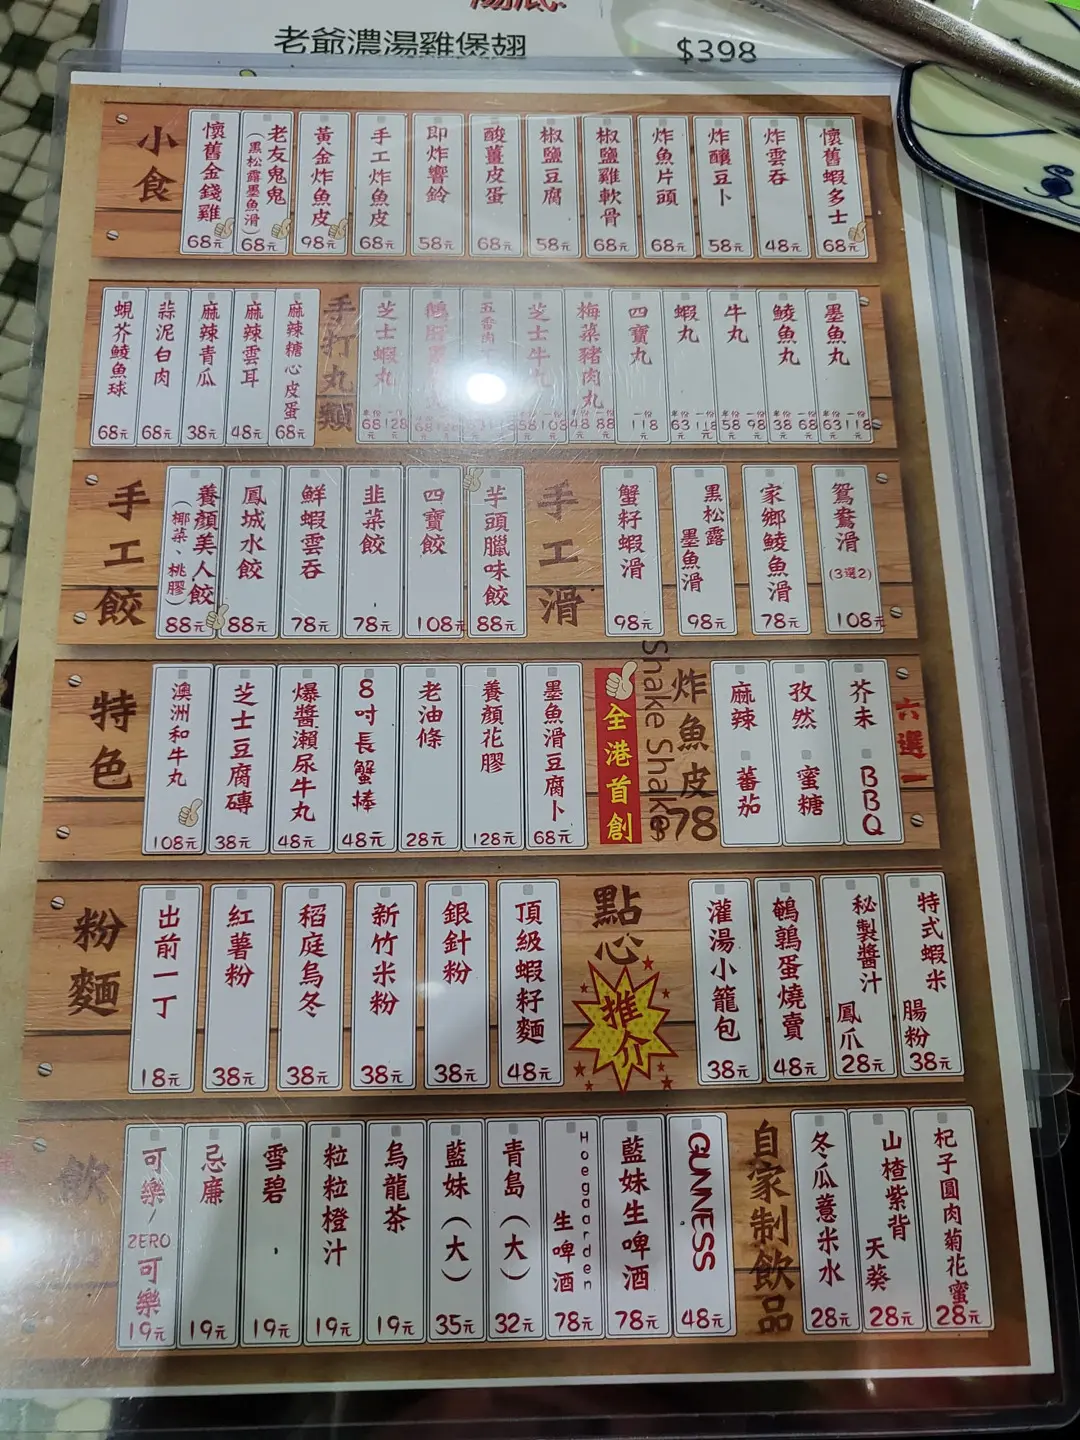 老爺濃湯雞煲翅 $398
小食
懷舊金錢雞 68元
老友鬼鬼 (黑松露墨魚滑) 68元
黃金炸魚皮 98元
手工炸魚皮 68元
即炸響鈴 58元
酸薑皮蛋 68元
椒鹽豆腐 58元
椒鹽雞軟骨 68元
炸魚片頭 68元
炸釀豆卜 58元
炸雲吞 48元
懷舊蝦多士 68元
蜆芥鯪魚球 68元
蒜泥白肉 68元
麻辣青瓜 38元
麻辣雲耳 48元
麻辣糖心皮蛋 68元
手打丸類
芝士蝦丸 半份68元 一份128
五香肉
芝士牛丸 58 108
梅菜豬肉丸 48 88
四寶丸 一份118元
蝦丸 半份63元 一份118
牛丸 半份58元 一份98
鯪魚丸 半份38元 一份68
墨魚丸 半份63元 一份118元
手工餃
養顏美人餃 (椰菜、桃膠) 88元
鳳城水餃 88元
鮮蝦雲吞 78元
韭菜餃 78元
四寶餃 108元
芋頭臘味餃 88元
手工滑
蟹籽蝦滑 98元
黑松露墨魚滑 98元
家鄉鯪魚滑 78元
鴛鴦滑 (3選2) 108元
特色
澳洲和牛丸 108元
芝士豆腐磚 38元
爆醬瀨尿牛丸 48元
8吋長蟹棒 48元
老油條 28元
養顏花膠 128元
墨魚滑豆腐卜 68元
全港首創
Shake Shake
炸魚皮 78
麻辣 蕃茄
孜然 蜜糖
芥末 BBQ
六選一
粉麵
出前一丁 18元
紅薯粉 38元
稻庭烏冬 38元
新竹米粉 38元
銀針粉 38元
頂級蝦籽麵 48元
點心推介
灌湯小籠包 38元
鵪鶉蛋燒賣 48元
秘製醬汁鳳爪 28元
特式蝦米腸粉 38元
飲
可樂/ZERO可樂 19元
忌廉 19元
雪碧 19元
粒粒橙汁 19元
烏龍茶 19元
藍妹(大) 35元
青島(大) 32元
Hoegaarden 生啤酒 78元
藍妹生啤酒 78元
GUNNESS 48元
自家制飲品
冬瓜薏米水 28元
山楂紫背天葵 28元
杞子圓肉菊花蜜 28元